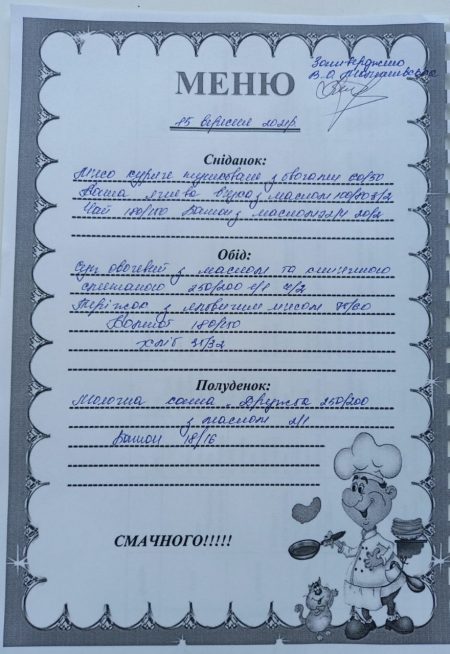 Затверджено
МЕНЮ
15 вересня 2021р
Сніданок:
М'ясо куряче тушковане з овочами 60/50
Каша ячнева в'язка з маслом 100/80
Чай 180/150 Батон з маслом 20/2
Обід:
Суп овочевий з маслом та кип'яченою
сметаною 250/200
з яловичим м'ясом 70/60
Компот 180/150
хліб
Полуденок:
Молочна каша „Дружба 250/200
з маслом 2/1
Батон 18/16
СМАЧНОГО!!!!!